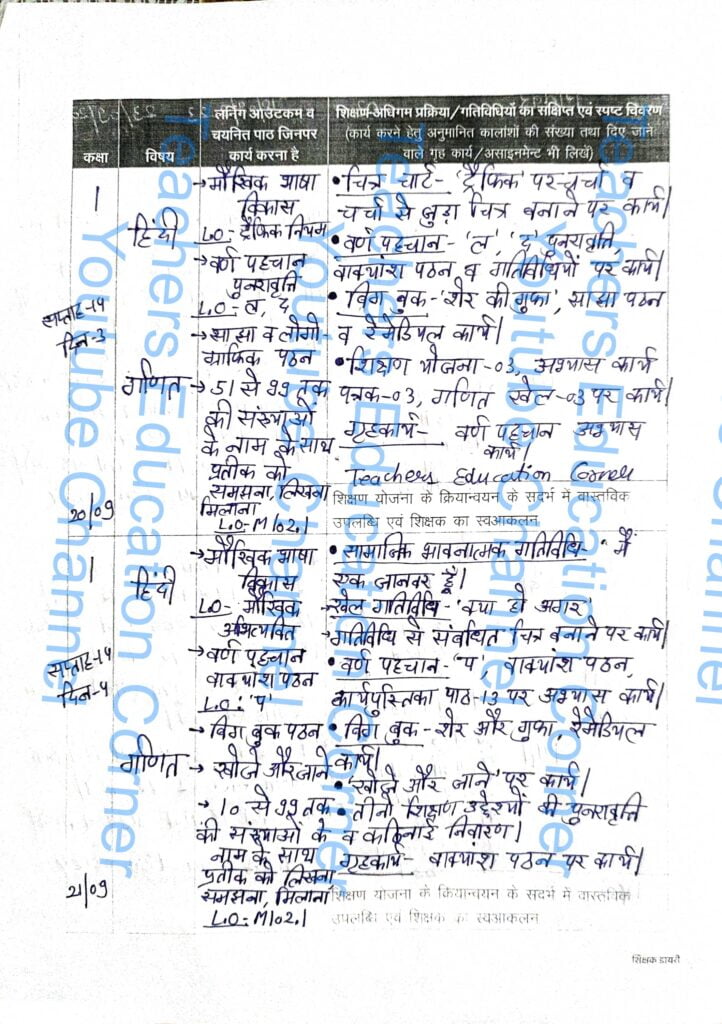 कक्षा
विषय
लर्निंग आउटकम व
चयनित पाठ जिनपर
कार्य करना है
शिक्षण-अधिगम प्रक्रिया/गतिविधियों का संक्षिप्त एवं स्पष्ट विवरण
(कार्य करने हेतु अनुमानित कालांशों की संख्या तथा दिए जाने
वाले गृह कार्य/असाइनमेंट भी लिखें)
1
हिंदी
सप्ताह-14
दिन-3
गणित
20/09
→ मौखिक भाषा
विकास
LO- ट्रैफिक नियम
→ वर्ण पहचान
पुनरावृत्ति
LO- ल, द
→ साझा व लोगो-
ग्राफिक पठन
→ 51 से 99 तक
की संख्याओं
के नाम के साथ
प्रतीक को
समझना, लिखना
मिलाना
LO-M102.1
• चित्र चार्ट- 'ट्रैफिक' पर चर्चा व
चर्चा से जुड़ा चित्र बनाने पर कार्य।
• वर्ण पहचान- 'ल', 'द' पुनरावृत्ति,
वाक्यांश पठन व गतिविधियों पर कार्य।
• बिग बुक- शेर की गुफा, साझा पठन
व रेमेडियल कार्य।
• शिक्षण योजना-03, अभ्यास कार्य
पत्रक-03, गणित खेल-03 पर कार्य।
गृहकार्य- वर्ण पहचान अभ्यास
कार्य।
Teachers Education Corner
शिक्षण योजना के क्रियान्वयन के संदर्भ में वास्तविक
उपलब्धि एवं शिक्षक का स्वआकलन
1
हिंदी
सप्ताह-14
दिन-4
गणित
21/09
→ मौखिक भाषा
विकास
LO- मौखिक
अभिव्यक्ति
→ वर्ण पहचान
वाक्यांश पठन
LO: 'प'
→ बिग बुक पठन
→ खोजें और जाने
→ 10 से 99 तक
की संख्याओं के
नाम के साथ
प्रतीक को लिखना
समझना, मिलाना
LO-M102.1
• सामाजिक भावनात्मक गतिविधि- 'मैं
एक जानवर हूँ।
खेल गतिविधि- 'क्या हो अगर'
गतिविधि से संबंधित चित्र बनाने पर कार्य।
• वर्ण पहचान- 'प', वाक्यांश पठन,
कार्यपुस्तिका पाठ-13 पर अभ्यास कार्य।
• बिग बुक- शेर और गुफा, रेमेडियल
कार्य।
• 'खोजें और जाने' पर कार्य।
• तीनो शिक्षण उद्देश्यो की पुनरावृत्ति
व कठिनाई निवारण।
गृहकार्य- वाक्यांश पठन पर कार्य।
शिक्षण योजना के क्रियान्वयन के संदर्भ में वास्तविक
उपलब्धि एवं शिक्षक का स्वआकलन
शिक्षक डायरी
Teachers Education Corner
Youtube Channel
Teachers Education Corner
Youtube Channel
Teachers Education Corner